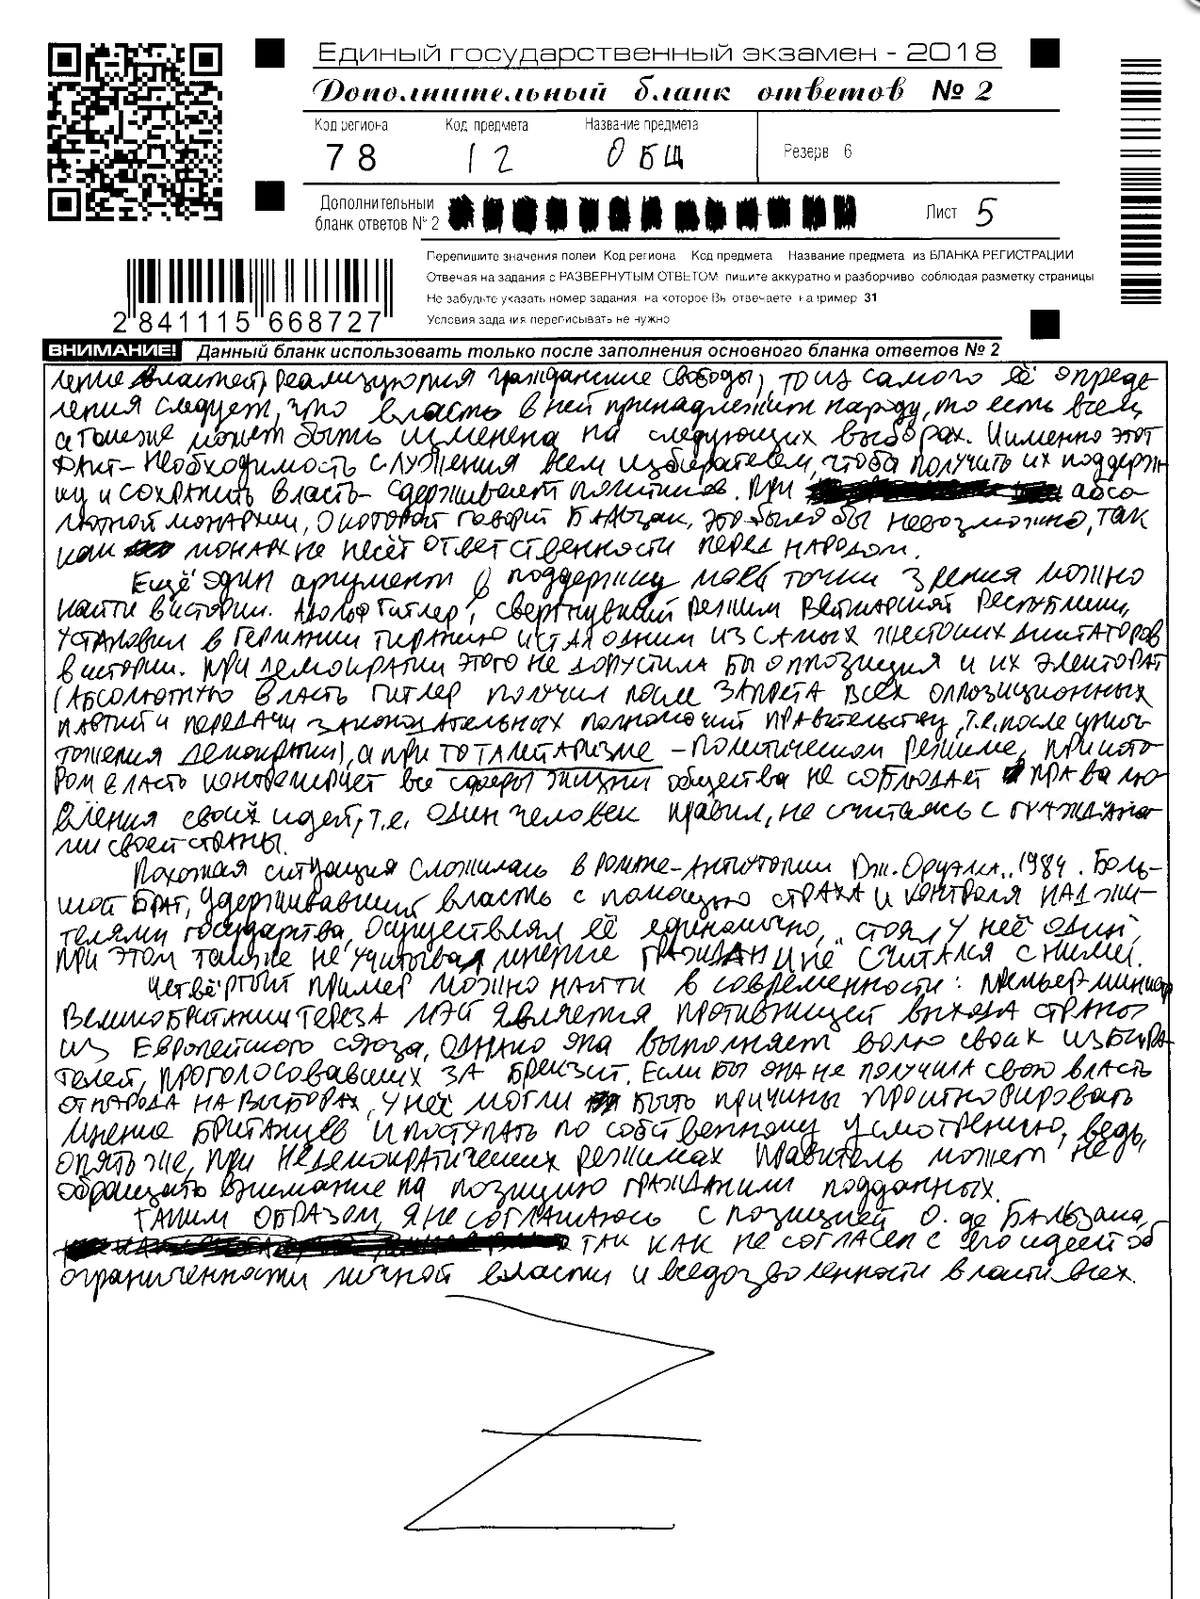 Единый государственный экзамен - 2018
Дополнительный бланк ответов № 2
Код региона Код предмета Название предмета
Резерв 6
78 12 ОБЩ
Дополнительный
бланк ответов № 2
Лист 5
Перепишите значения полей Код региона Код предмета Название предмета из БЛАНКА РЕГИСТРАЦИИ
Отвечая на задания с РАЗВЕРНУТЫМ ОТВЕТОМ пишите аккуратно и разборчиво соблюдая разметку страницы
Не забудьте указать номер задания на которое Вы отвечаете например 31
Условия задания переписывать не нужно
2841115 668727
ВНИМАНИЕ! Данный бланк использовать только после заполнения основного бланка ответов № 2
ление властей, реализующия гражданские свободы, то из самого её опреде-
ления следует, что власть в ней принадлежит народу, то есть всем,
а также может быть изменена на следующих выборах. Именно этот
факт - необходимость служения всем избирателем, чтобы получить их поддерж-
ку и сохранить власть - сдерживает политиков. При абсо-
лютной монархии, о которой говорит Бальзак, это было бы невозможно, так
как монарх не несёт ответственности перед народом.
Ещё один аргумент в поддержку моей точки зрения можно
найти в истории. Адольф Гитлер, свергнувший режим Веймарской Республики,
установил в Германии тиранию и стал одним из самых жестоких диктаторов
в истории. При демократии этого не допустила бы оппозиция и их электорат
(абсолютную власть Гитлер получил после запрета всех оппозиционных
партий и передачи законодательных полномочий правительству, т.е. после унич-
тожения демократии), а при тоталитаризме - политическом режиме, при кото-
ром власть контролирует все сферы жизни общества не соблюдает права
вления своих идей, т.е. один человек правил, не считаясь с граждана-
ми своей страны.
Похожая ситуация сложилась в романе-антиутопии Дж. Оруэлла „1984. Боль-
шой Брат, удерживавший власть с помощью страха и контроля над жи-
телями государства, осуществлял её единолично, „стоял у неё один,
при этом также не учитывал мнение граждан и не считался с ними.
Четвёртый пример можно найти в современности: премьер-министр
Великобритании Тереза Мэй является противницей выхода страны
из Европейского союза, однако она выполняет волю своих избира-
телей, проголосовавших за Брексит. Если бы она не получила свою власть
от народа на выборах, у неё могли быть причины проигнорировать
мнение британцев и поступать по собственному усмотрению, ведь,
опять же, при недемократических режимах правитель может не
обращать внимание на позицию граждан или подданных.
Таким образом, я не соглашаюсь с позицией О. де Бальзака,
так как не согласен с его идеей об
ограниченности личной власти и вседозволенности власти всех.